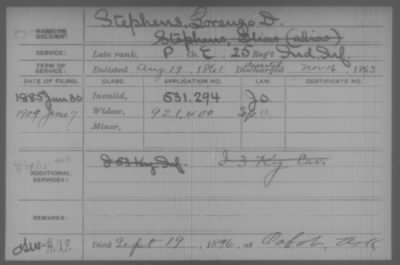 Stephens, Lorenzo D.
NAME OF SOLDIER:
Stephens, Elias (alias)
SERVICE: Late rank, P Co. E, 25 Reg't Ind. Inf
TERM OF SERVICE: Enlisted Aug. 19, 1861 Discharged Nov 16, 1863
DATE OF FILING. CLASS. APPLICATION NO. LAW. CERTIFICATE NO.
1885 Jan 30 Invalid, 531.294
1909 June 7 Widow, 921,400
Minor,
ADDITIONAL SERVICES: I 3 Ky Cav
REMARKS:
Died Sept 19, 1896, at Cabot, Ark